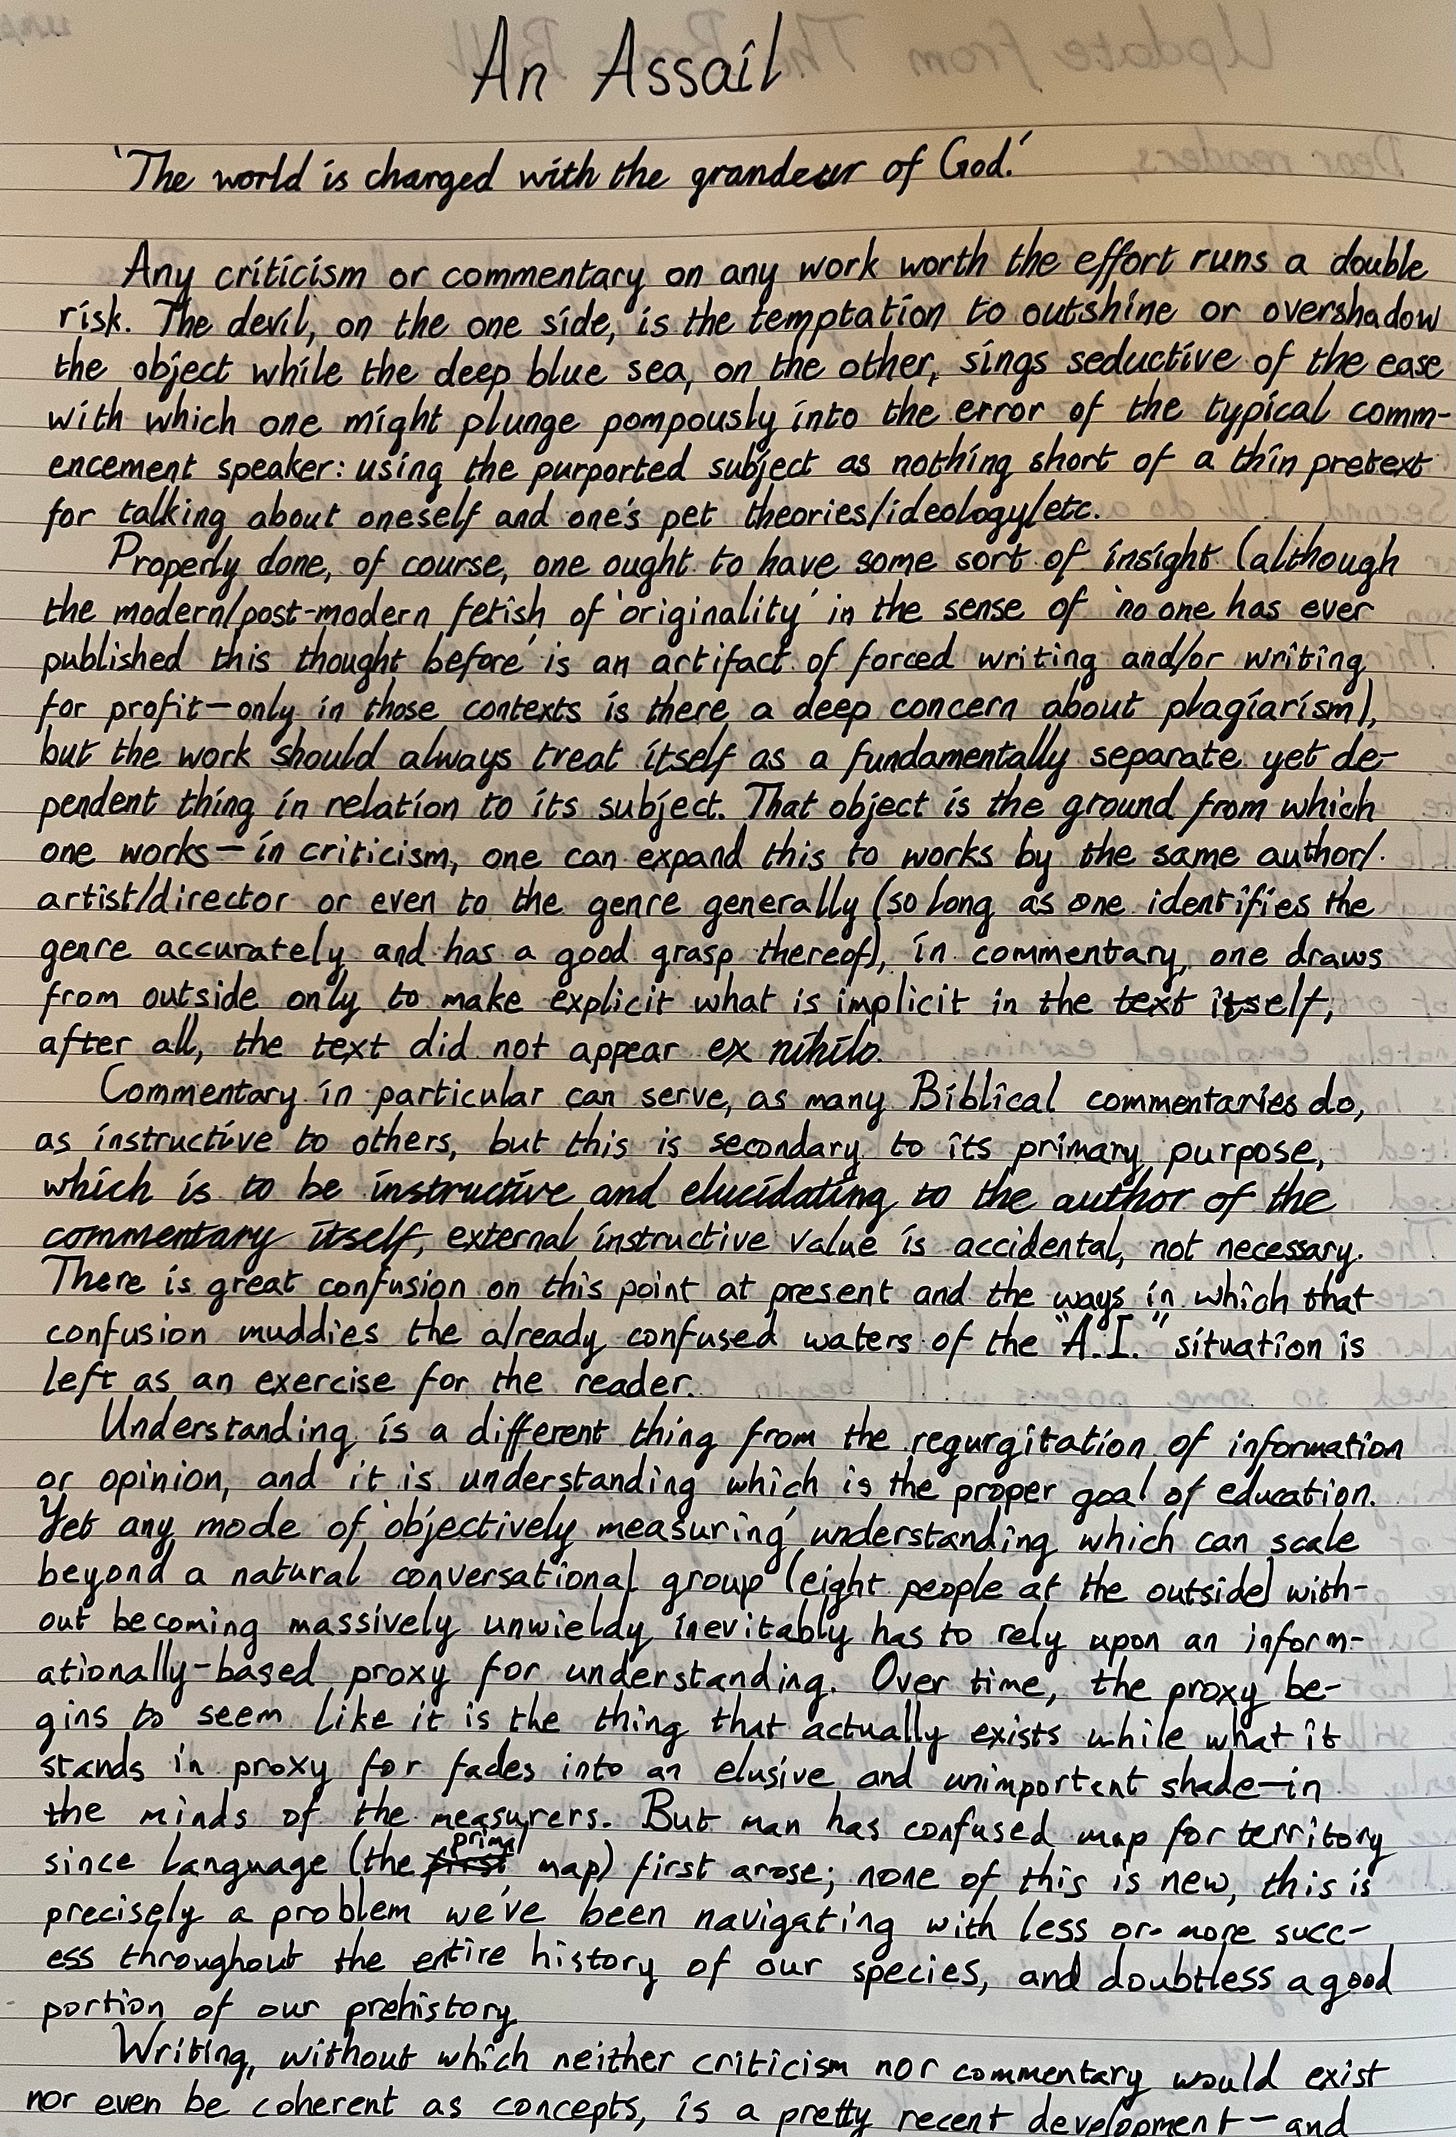 An Assail
'The world is charged with the grandeur of God.'
Any criticism or commentary on any work worth the effort runs a double
risk. The devil, on the one side, is the temptation to outshine or overshadow
the object while the deep blue sea, on the other, sings seductive of the ease
with which one might plunge pompously into the error of the typical comm-
encement speaker: using the purported subject as nothing short of a thin pretext
for talking about oneself and one's pet theories/ideology/etc.
Properly done, of course, one ought to have some sort of insight (although
the modern/post-modern fetish of 'originality' in the sense of 'no one has ever
published this thought before' is an artifact of forced writing and/or writing
for profit—only in those contexts is there a deep concern about plagiarism),
but the work should always treat itself as a fundamentally separate yet de-
pendent thing in relation to its subject. That object is the ground from which
one works—in criticism, one can expand this to works by the same author/
artist/director or even to the genre generally (so long as one identifies the
genre accurately and has a good grasp thereof), in commentary, one draws
from outside only to make explicit what is implicit in the text itself;
after all, the text did not appear ex nihilo.
Commentary in particular can serve, as many Biblical commentaries do,
as instructive to others, but this is secondary to its primary purpose,
which is to be instructive and elucidating to the author of the
commentary itself, external instructive value is accidental, not necessary.
There is great confusion on this point at present and the ways in which that
confusion muddies the already confused waters of the "A.I." situation is
left as an exercise for the reader.
Understanding is a different thing from the regurgitation of information
or opinion, and it is understanding which is the proper goal of education.
Yet any mode of 'objectively measuring' understanding which can scale
beyond a natural conversational group (eight people at the outside) with-
out becoming massively unwieldy inevitably has to rely upon an inform-
ationally-based proxy for understanding. Over time, the proxy be-
gins to seem like it is the thing that actually exists while what it
stands in proxy for fades into an elusive and unimportant shade—in
the minds of the measurers. But man has confused map for territory
since language (the primal map) first arose; none of this is new, this is
precisely a problem we've been navigating with less or more succ-
ess throughout the entire history of our species, and doubtless a good
portion of our prehistory.
Writing, without which neither criticism nor commentary would exist
nor even be coherent as concepts, is a pretty recent development—and